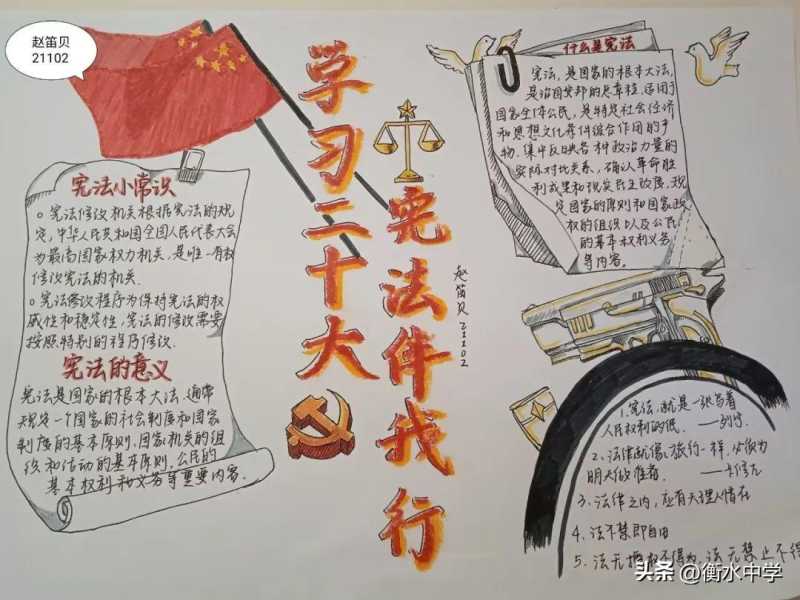 赵笛贝
21102
学习二十大
宪法伴我行
赵笛贝 21102
宪法小常识
宪法修改机关根据宪法的规
定,中华人民共和国全国人民代表大会
为最高国家权力机关,是唯一有权
修改宪法的机关.
宪法修改程序为保持宪法的权
威性和稳定性,宪法的修改需要
按照特别的程序修改.
宪法的意义
宪法是国家的根本大法,通常
规定一个国家的社会制度和国家
制度的基本原则,国家机关的组
织和活动的基本原则,公民的
基本权利和义务等重要内容.
什么是宪法
宪法,是国家的根本大法,
是治国安邦的总章程,适用于
国家全体公民,是特定社会经济
和思想文化条件综合作用的产
物.集中反映各种政治力量的
实际对比关系,确认革命胜
利成果和现实民主政治,规
定国家的原则和国家政
权的组织以及公民
的基本权利义务
等内容。
1.宪法,就是一张写着
人民权利的纸. ——列宁.
2.法律就像旅行一样,必须为
明天做准备. ——卡
3.法律之内,应有天理人情在
4.法不禁即自由
5.法无授权不得为,法无禁止不得
头条 @衡水中学